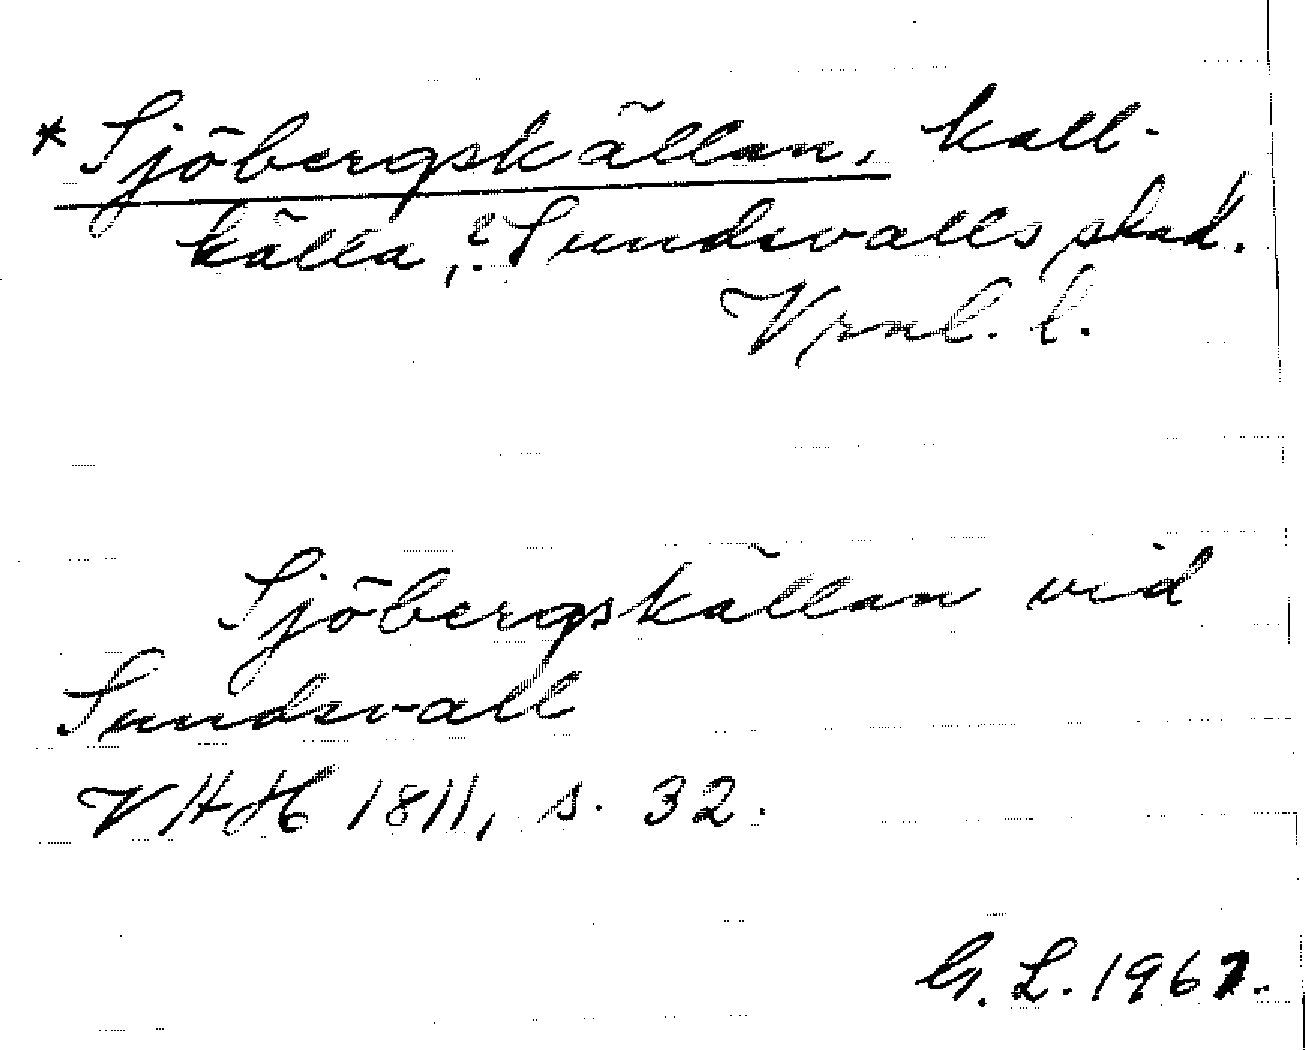 *Sjöbergskällan, kall-
källa, ? Sundsvalls skad.
Vrnl. l.
Sjöbergskällan vid
Sundsvall
VHH 1811, s. 32.
G. L. 1967.